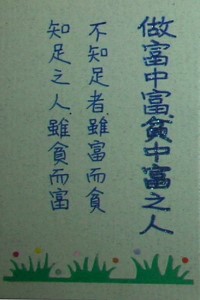 做富中富貧中富之人
不知足者雖富而貧
知足之人雖貧而富